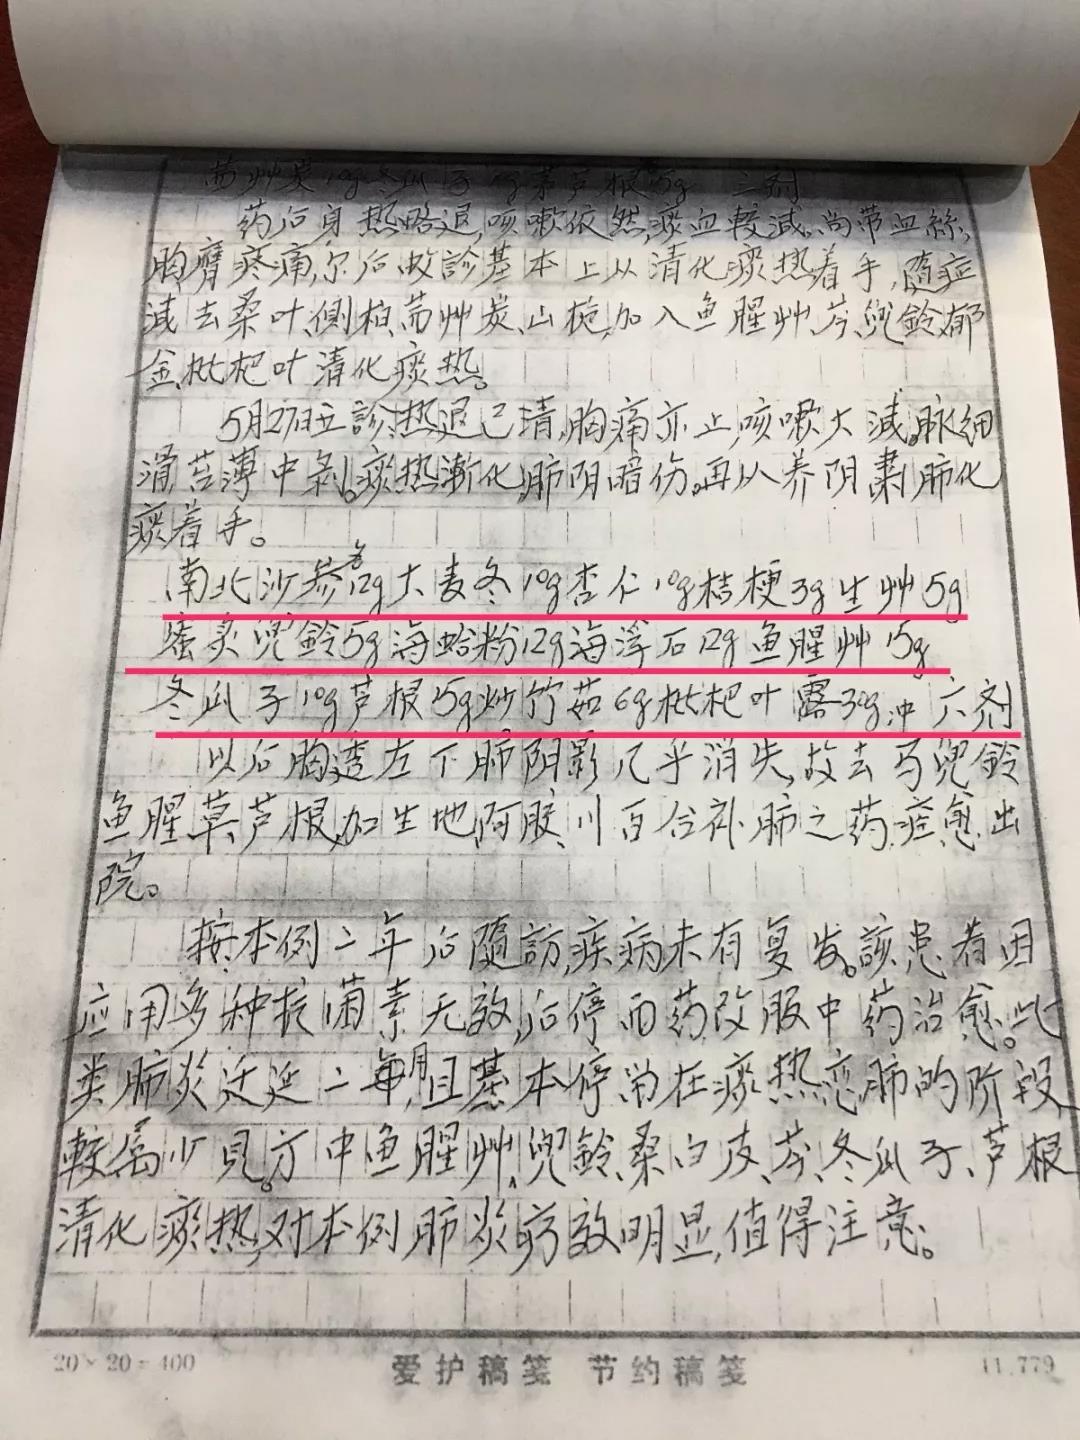 茜艸炭10g冬瓜子10g茅芦根各15g 二剂
药后身热略退,咳嗽依然,痰血較减。尚带血絲,
胸膺疼痛,尔后改診基本上从清化痰热着手,随症
减去桑叶、侧柏、茜艸炭、山栀,加入鱼腥艸、芩、兜鈴、郁
金、枇杷叶清化痰热。
5月27日五診,热退已清,胸痛亦止,咳嗽大减。脉细
滑,苔薄中剥。痰热渐化,肺阴暗伤。再从养阴肅肺化
痰着手。
南北沙参各12g大麦冬10g杏仁10g桔梗3g生艸5g
蜜炙兜鈴5g海蛤粉12g海浮石12g鱼腥艸15g
冬瓜子10g芦根15g炒竹茹6g枇杷叶露30g冲 六剂
以后胸透左下肺阴影几乎消失,故去马兜鈴
鱼腥草芦根,加生地,阿胶、川百合补肺之药,症愈出
院。
按:本例二年后随訪,疾病未有复发。該患者因
应用多种抗菌素无效,后停西药改服中药治愈。此
类肺炎迁延二每月,且基本停留在痰热恋肺的阶段,
較属少見。方中鱼腥艸、兜鈴、桑白皮、芩、冬瓜子、芦根
清化痰热,对本例肺炎疗效明显,值得注意。
20×20=400 爱护稿笺 节约稿笺 11.779